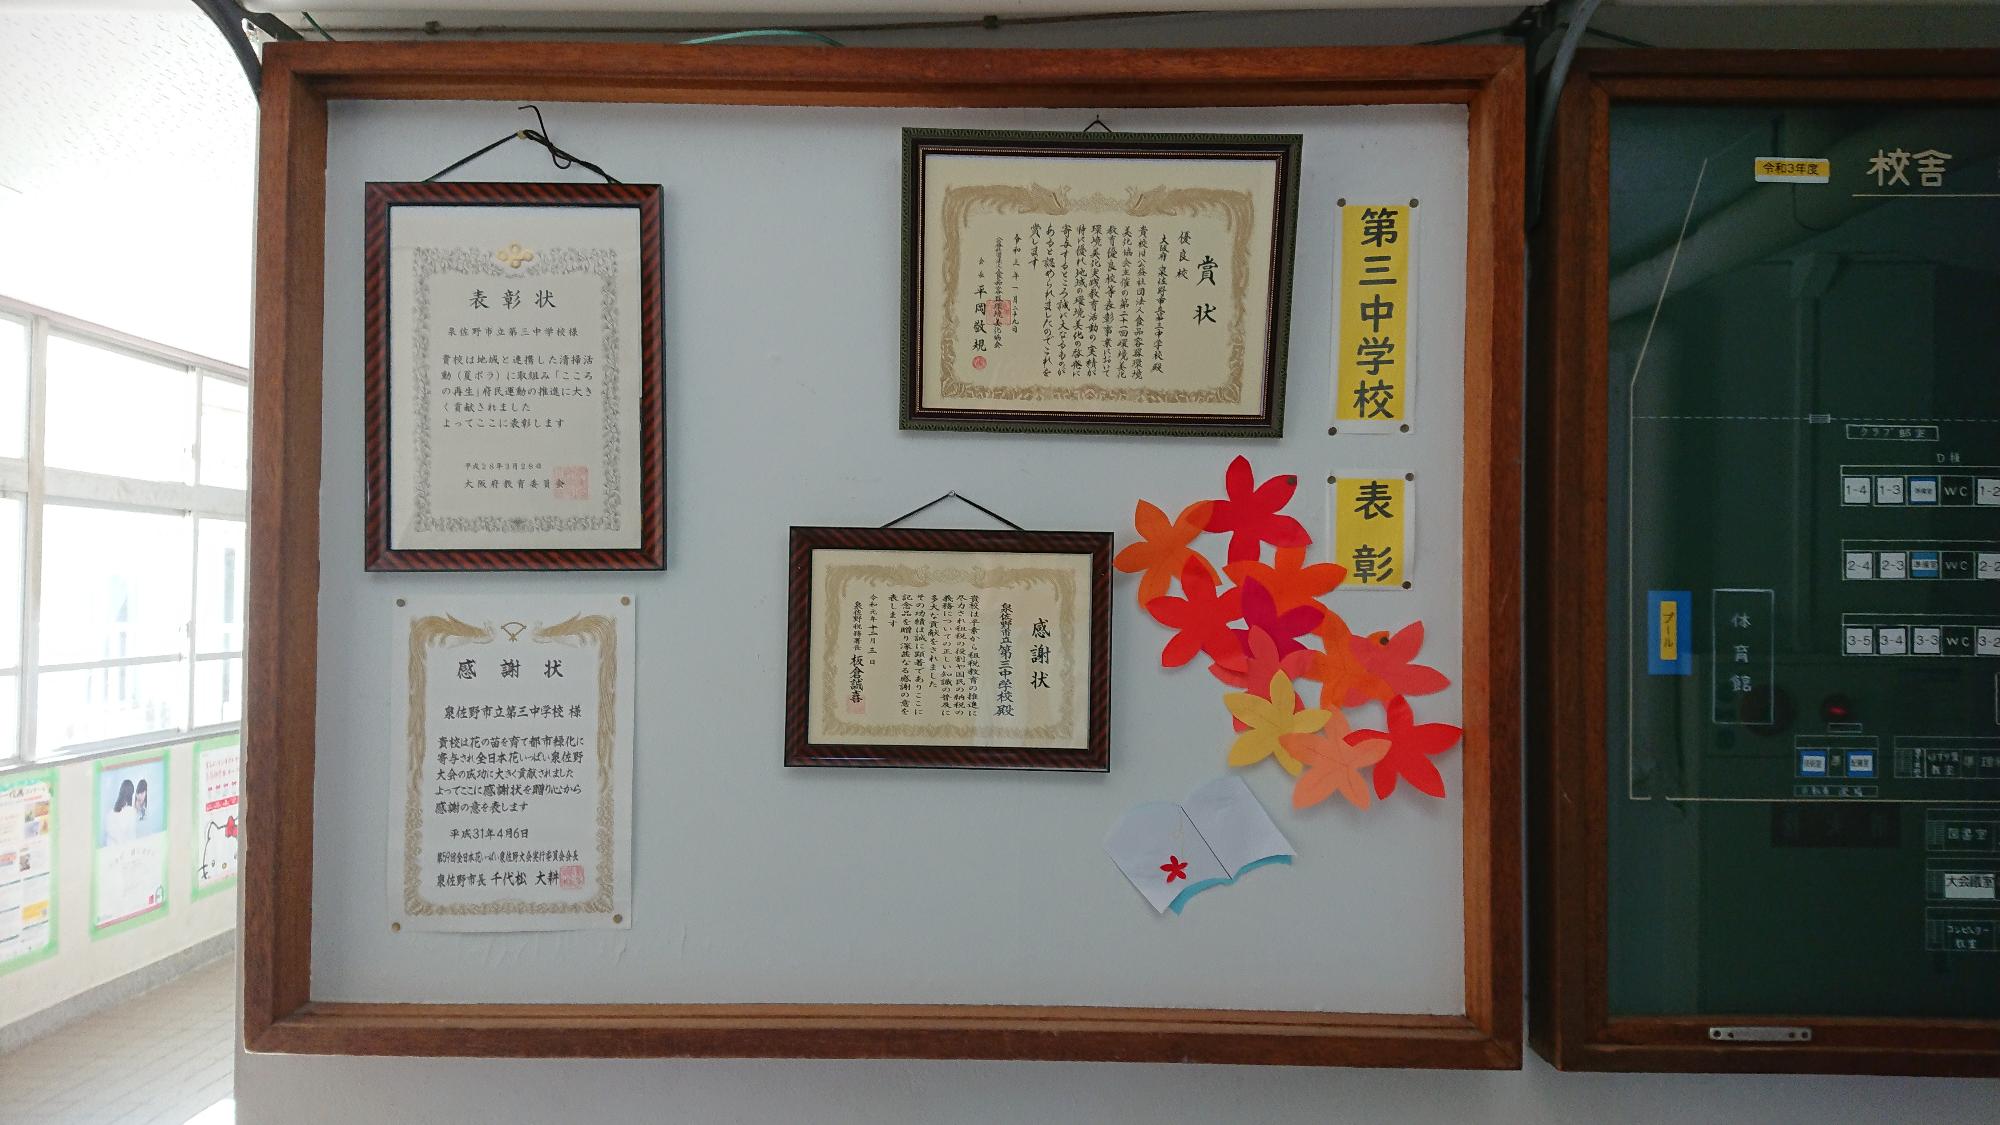 表彰状
泉佐野市立第三中学校様
貴校は地域と連携した清掃活
動(夏ボラ)に取組み「こころ
の再生」府民運動の推進に大き
く貢献されました
よってここに表彰します
平成28年3月28日
大阪府教育委員会
感謝状
泉佐野市立第三中学校 様
貴校は花の苗を育て都市緑化に
寄与され全日本花いっぱい泉佐野
大会の成功に大きく貢献されました
よってここに感謝状を贈り心から
感謝の意を表します
平成31年4月6日
第59回全日本花いっぱい泉佐野大会実行委員会会長
泉佐野市長 千代松 大耕
賞状
優良校
大阪府 泉佐野市立第三中学校殿
貴校は公益社団法人食品容器環境
美化協会主催の第二十一回環境美化
教育優良校等表彰事業において
環境美化実践教育活動の実績が
特に優れ地域の環境美化の啓発に
寄与するところ誠に大なるものが
あると認められましたのでこれを
賞します
令和三年一月二十九日
公益社団法人食品容器環境美化協会
会長 平岡敬規
感謝状
泉佐野市立第三中学校殿
貴校は平素から租税教育の推進に
尽力され租税の役割や国民の納税の
義務についての正しい知識の普及に
多大な貢献をされました
その功績は誠に顕著でありここに
記念品を贈り深甚なる感謝の意を
表します
令和元年十二月三日
泉佐野税務署長 板倉誠喜
第三中学校
表彰
令和3年度
校舎
クラブ部室
D棟
1-4 1-3 準備室 WC 1-2
2-4 2-3 準備室 WC 2-2
3-5 3-4 3-3 WC 3-2
プール
体育館
配膳室
図書室
大会議室
コンピューター
教室